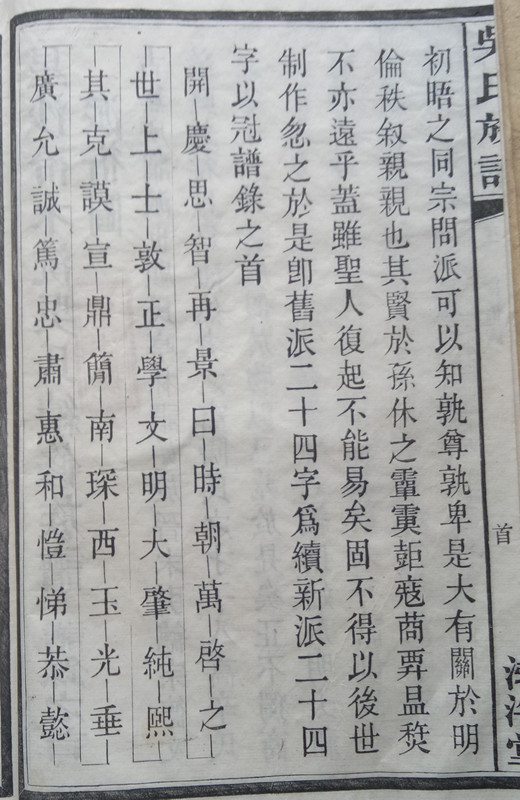 吳氏族譜
首
初晤之同宗問派可以知孰尊孰卑是大有關於明
倫秩叙親親也其賢於孫休之
不亦遠乎蓋雖聖人復起不能易矣固不得以後世
制作忽之於是卽舊派二十四字爲續新派二十四
字以冠譜錄之首
開慶思智再景曰時朝萬啓之
世上士敦正學文明大肇純熙
其克謨宣鼎簡南琛西玉光垂
廣允誠篤忠肅惠和愷悌恭懿